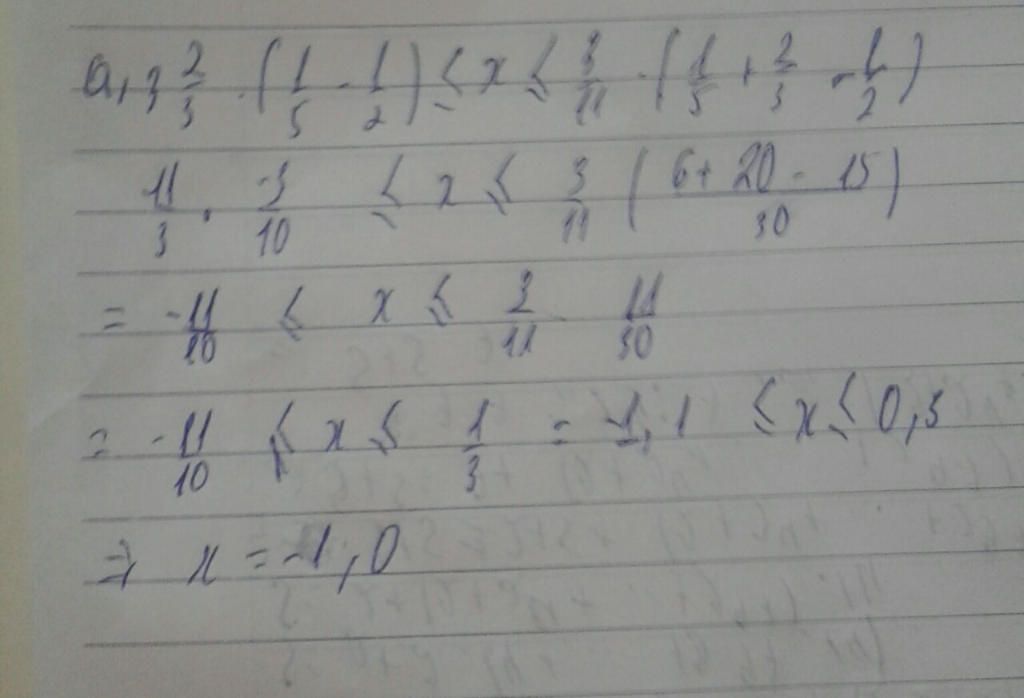 a, 3 2/3 . (1/5 - 1/2) ≤ x ≤ 3/11 . (1/5 + 2/3 - 1/2)
11/3 . -3/10 ≤ x ≤ 3/11 (6 + 20 - 15 / 30)
= -11/10 ≤ x ≤ 3/11 11/30
= -11/10 ≤ x ≤ 1/3 = -1,1 ≤ x ≤ 0,3
⇒ x = -1, 0